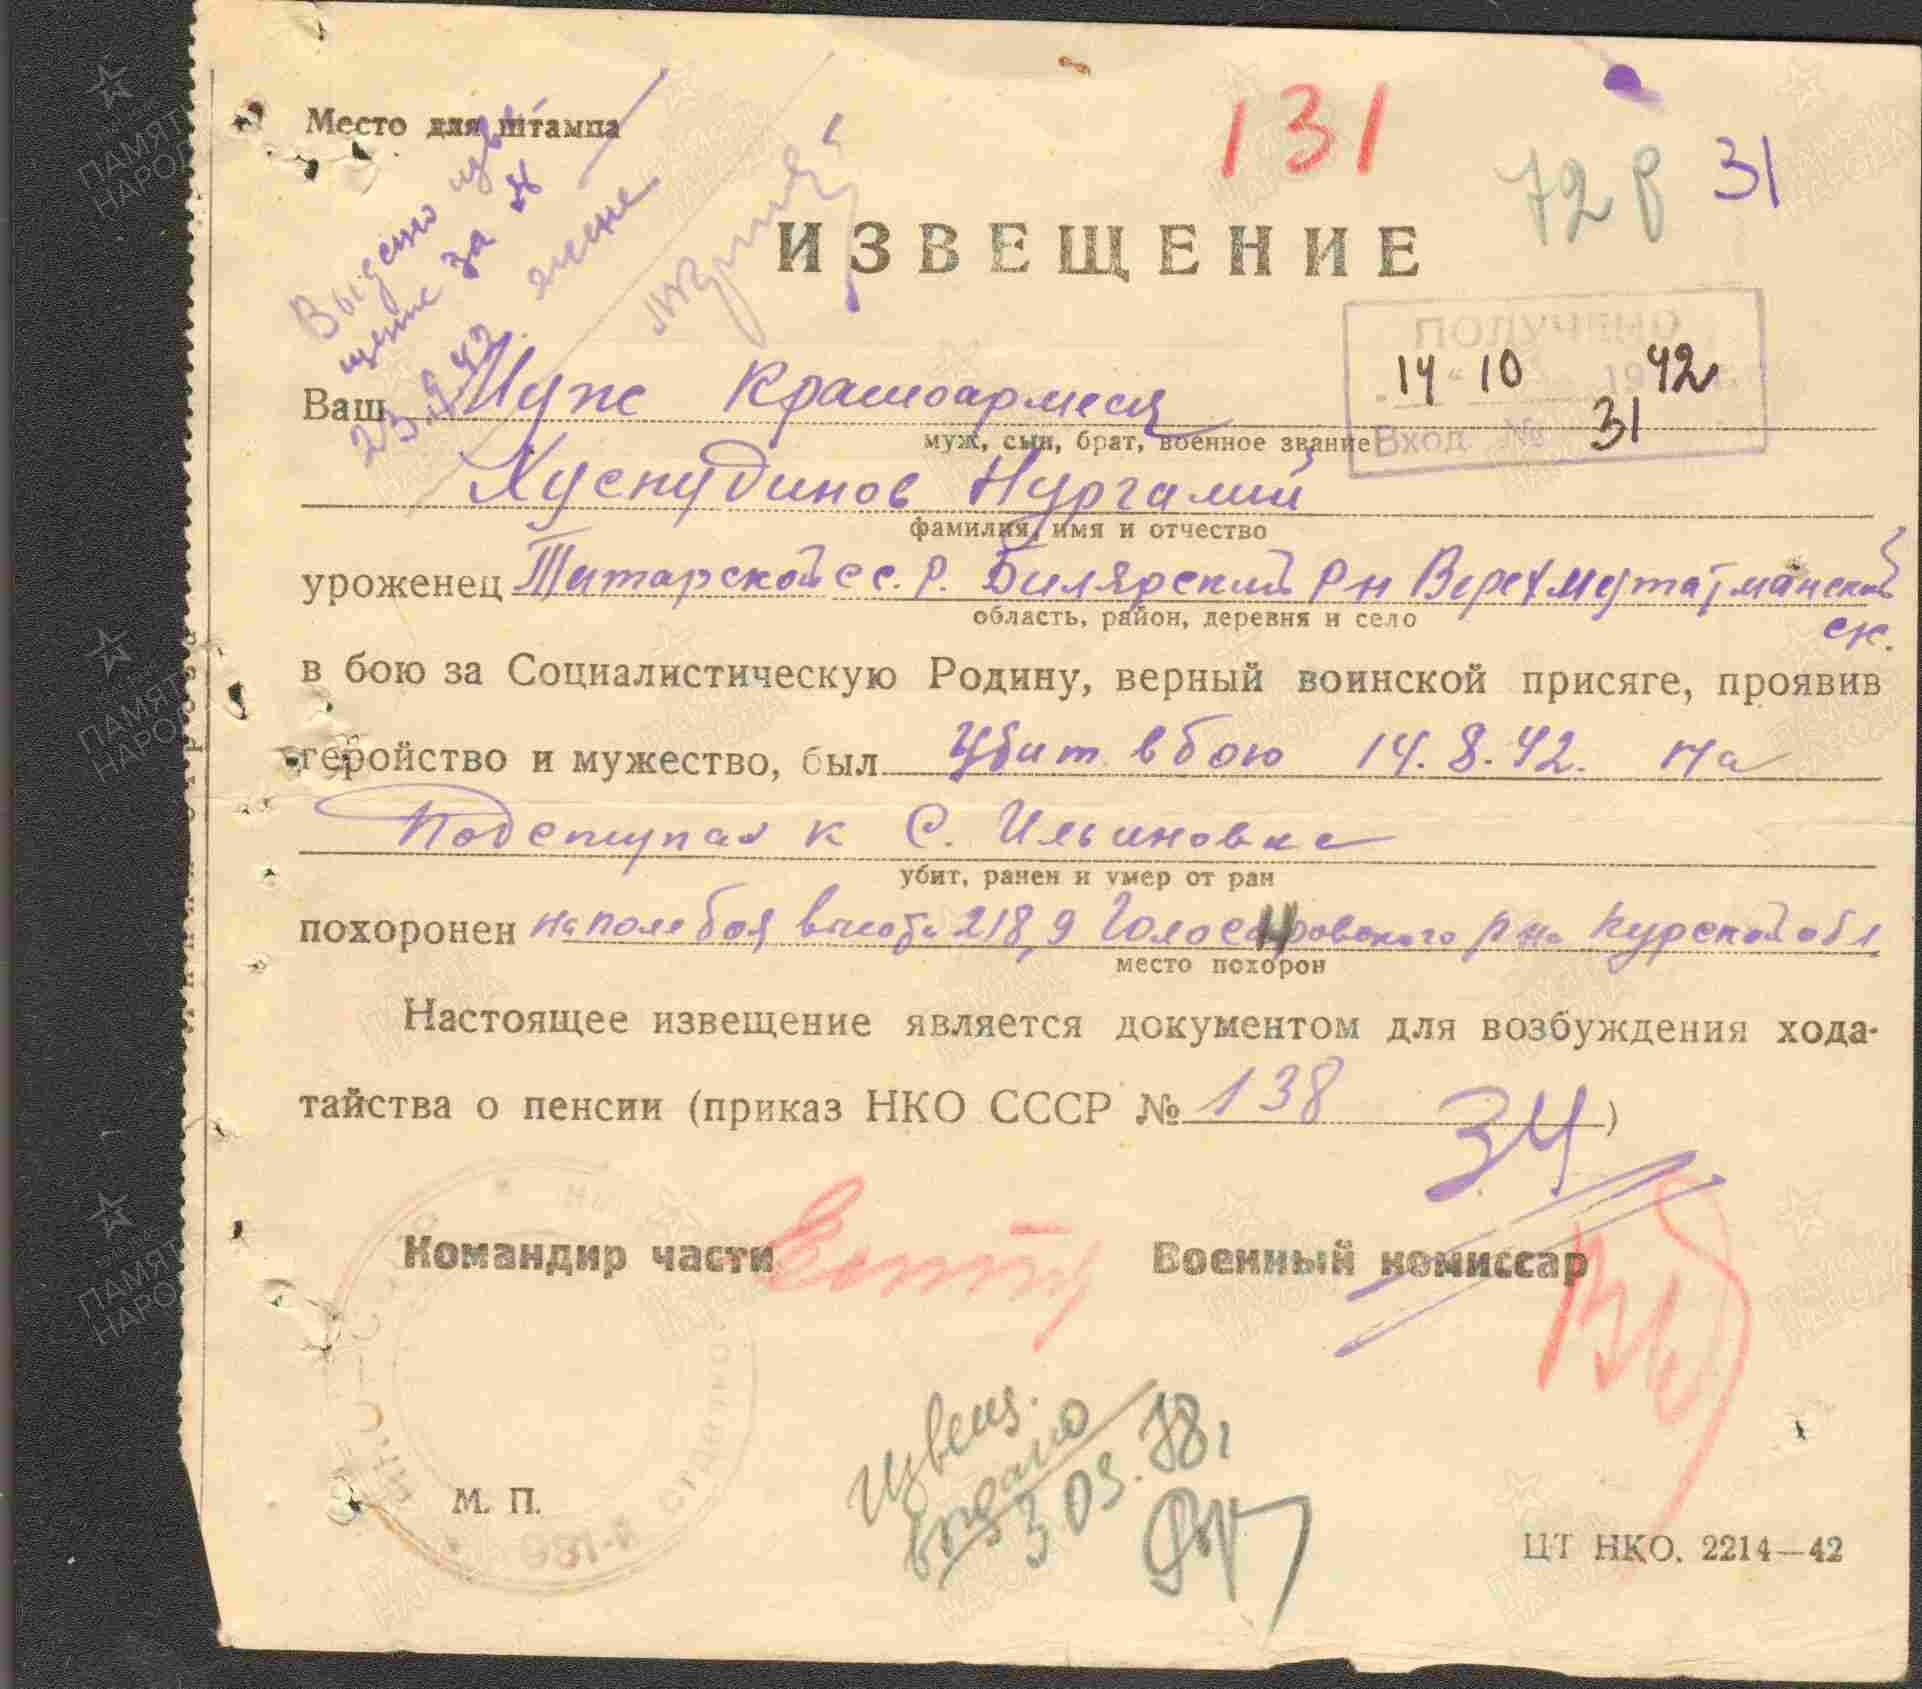 131
72 р 31
Место для штампа
Выдено изве
щение за №
23.9.42 жене
ИЗВЕЩЕНИЕ
ПОЛУЧЕНО
14 " 10 1942
Вход. № 31
Ваш Муж Красноармеец
муж, сын, брат, военное звание
Хуснудинов Нургалий
фамилия, имя и отчество
уроженец Татарской сс. р. Билярский рн
область, район, деревня и село
ск.
в бою за Социалистическую Родину, верный воинской присяге, проявив
геройство и мужество, был Убит в бою 14.8.42. на
Подступах к С. Ильиновке
убит, ранен и умер от ран
похоронен на поле боя высота 218,9 рна Курской обл
место похорон
Настоящее извещение является документом для возбуждения хода-
тайства о пенсии (приказ НКО СССР № 138 )
34
Командир части Военный комиссар
Извещ.
выдано
3 03. 78г
М. П.
ЦТ НКО. 2214—42
ПАМЯТЬ
НАРОДА